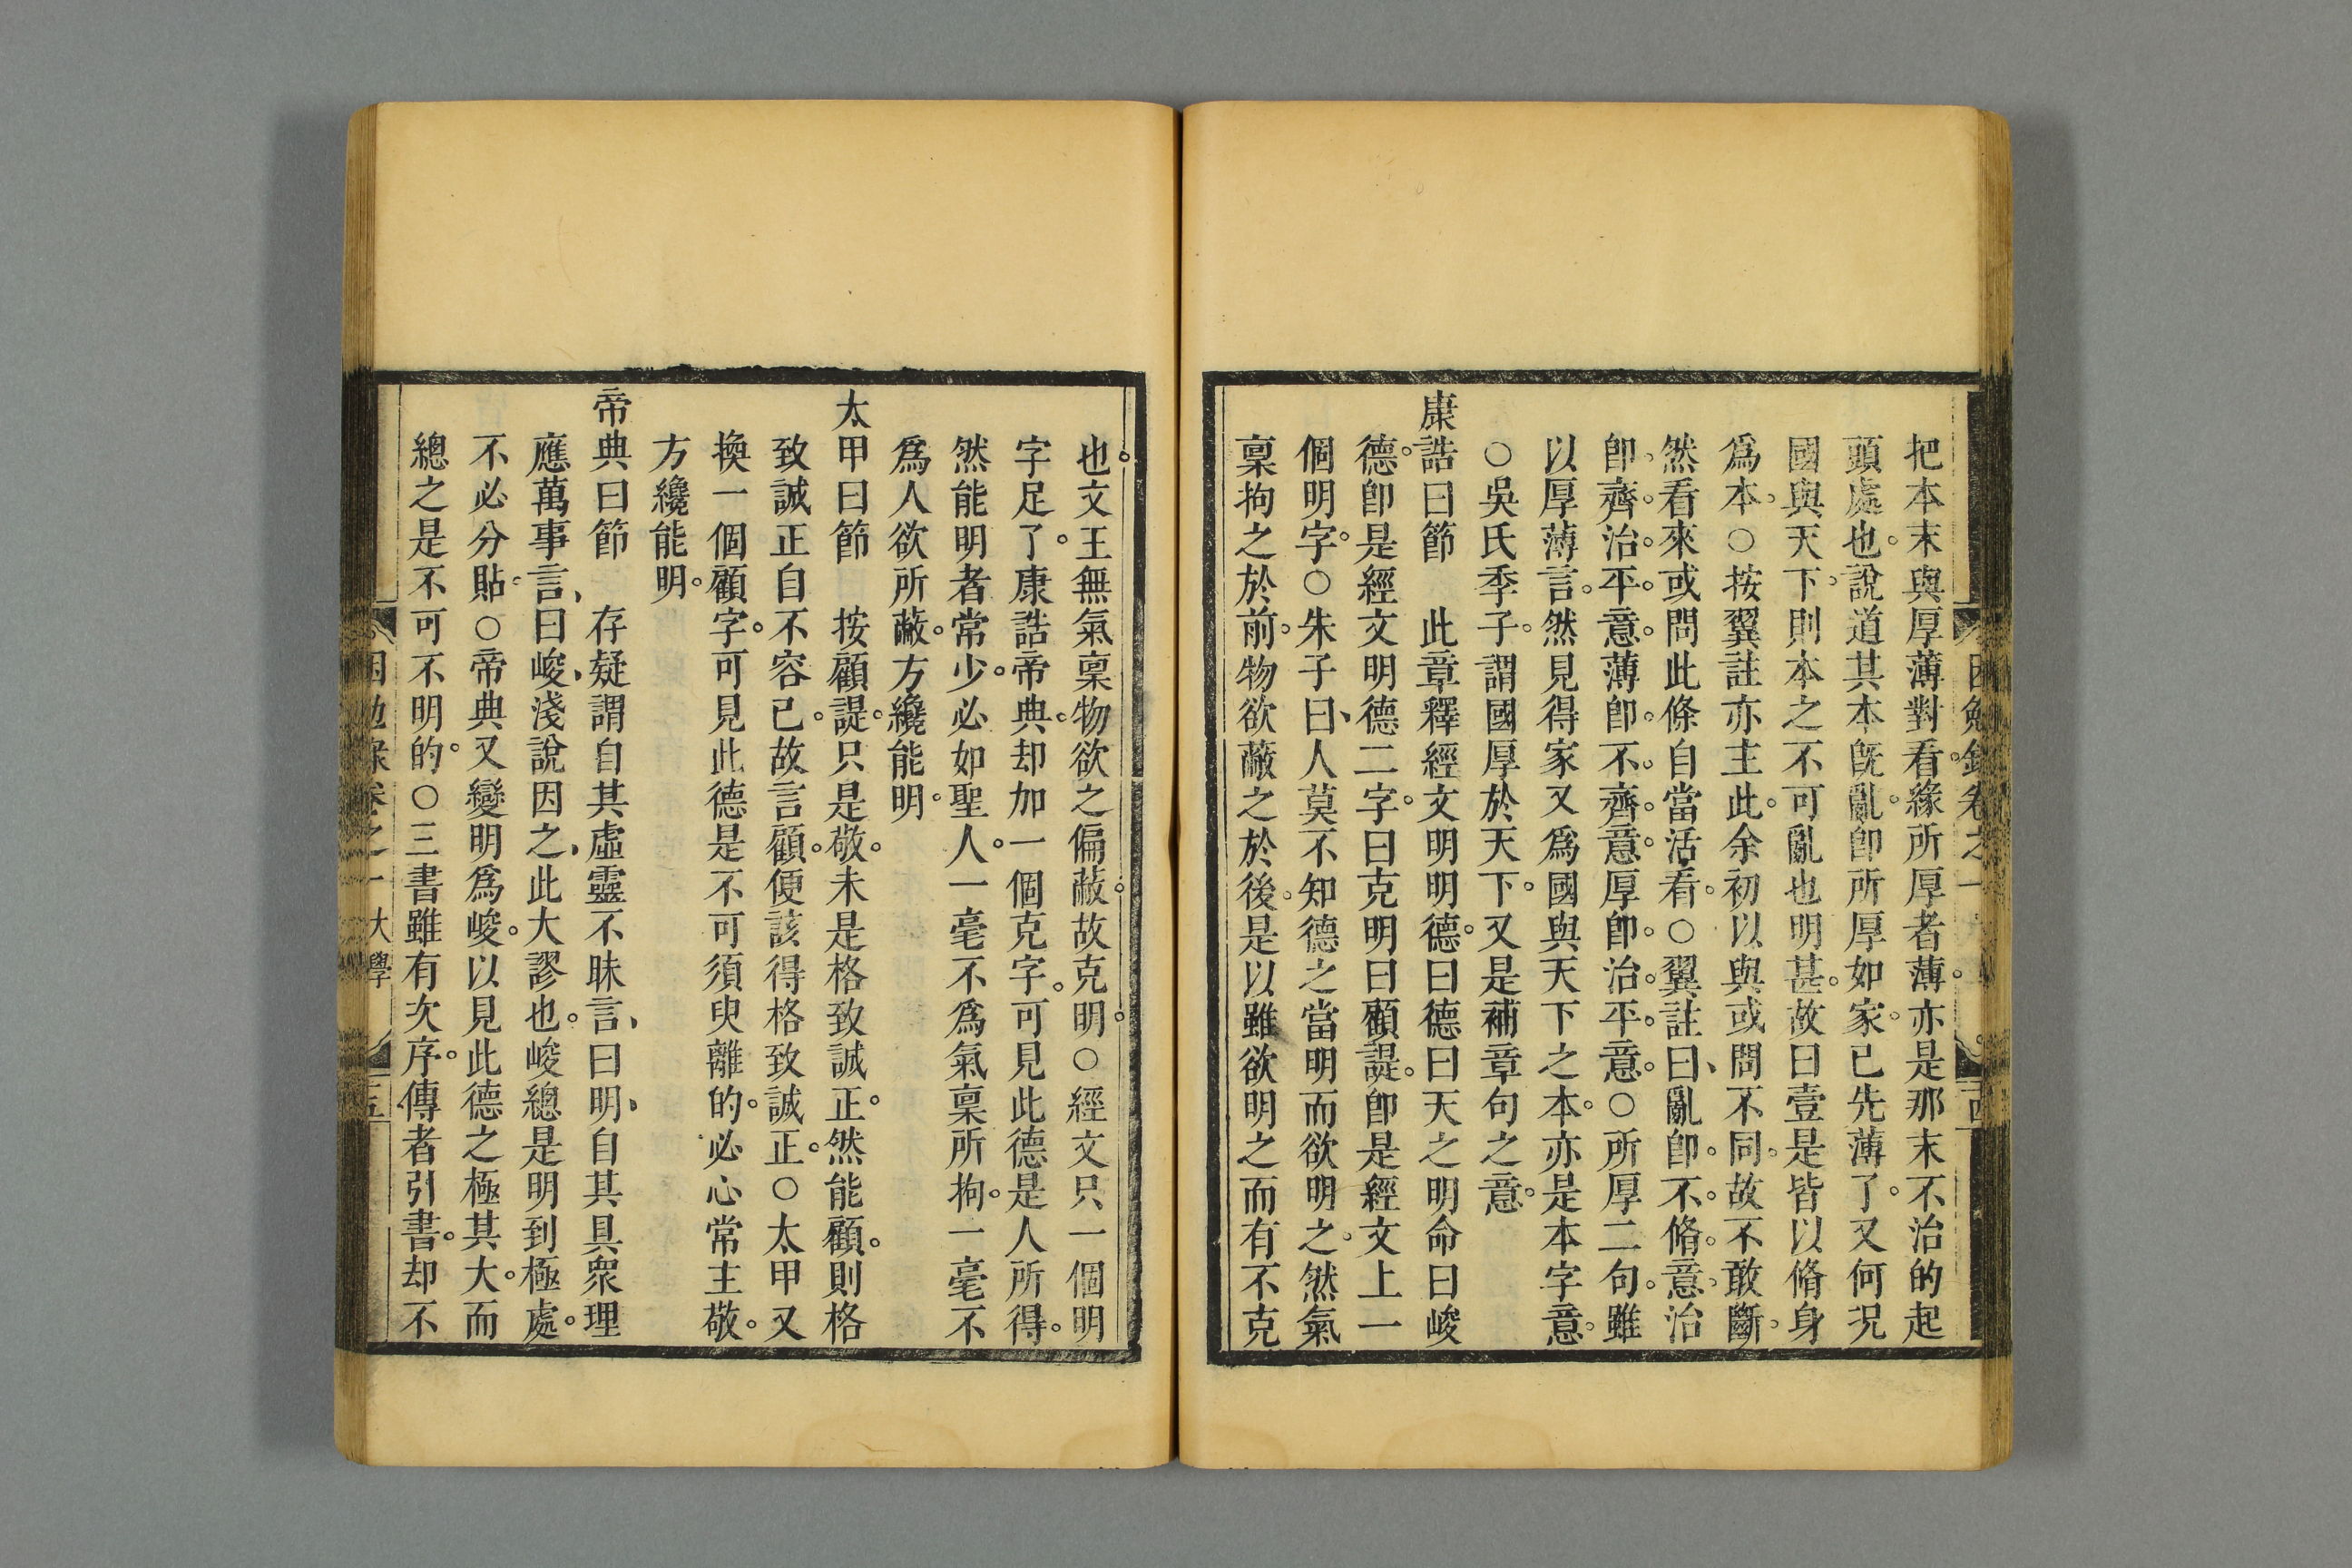 把本末與厚薄對看。緣所厚者薄。亦是那末不治的起
頭處也。說道其本旣亂。卽所厚如家。已先薄了。又何況
國與天下。則本之不可亂也明甚。故曰壹是皆以脩身
爲本。○按翼註亦主此。余初以與或問不同。故不敢斷。
然看來或問此條自當活看。○翼註曰、亂卽。不。脩。意。治
卽。齊。治。平。意。薄卽。不。齊。意。厚卽。治。平。意。○所厚二句。雖
以厚薄言。然見得家又爲國與天下之本。亦是本字意。
○吳氏季子。謂國厚於天下。又是補章句之意。
康誥曰節　此章釋經文明明德。曰德曰天之明命曰峻
德。卽是經文明德二字。曰克明曰顧諟。卽是經文上一
個明字。○朱子曰、人莫不知德之當明而欲明之。然氣
稟拘之於前。物欲蔽之於後。是以雖欲明之而有不克
也。文王無氣稟物欲之偏蔽。故克明。○經文只一個明
字足了。康誥帝典。却加一個克字。可見此德是人所得。
然能明者常少。必如聖人。一毫不爲氣稟所拘。一毫不
爲人欲所蔽。方纔能明。
太甲曰節　按顧諟。只是敬。未是格致誠正。然能顧。則格
致誠正自不容已。故言顧。便該得格致誠正。○太甲又
換一個顧字。可見此德是不可須臾離的。必心常主敬。
方纔能明。
帝典曰節　存疑謂自其虛靈不昧言、曰明、自其具衆理
應萬事言、曰峻、淺說因之、此大謬也。峻總是明到極處。
不必分貼。○帝典又變明爲峻。以見此德之極其大。而
總之是不可不明的。○三書雖有次序。傳者引書。却不
困勉錄卷之一 大學